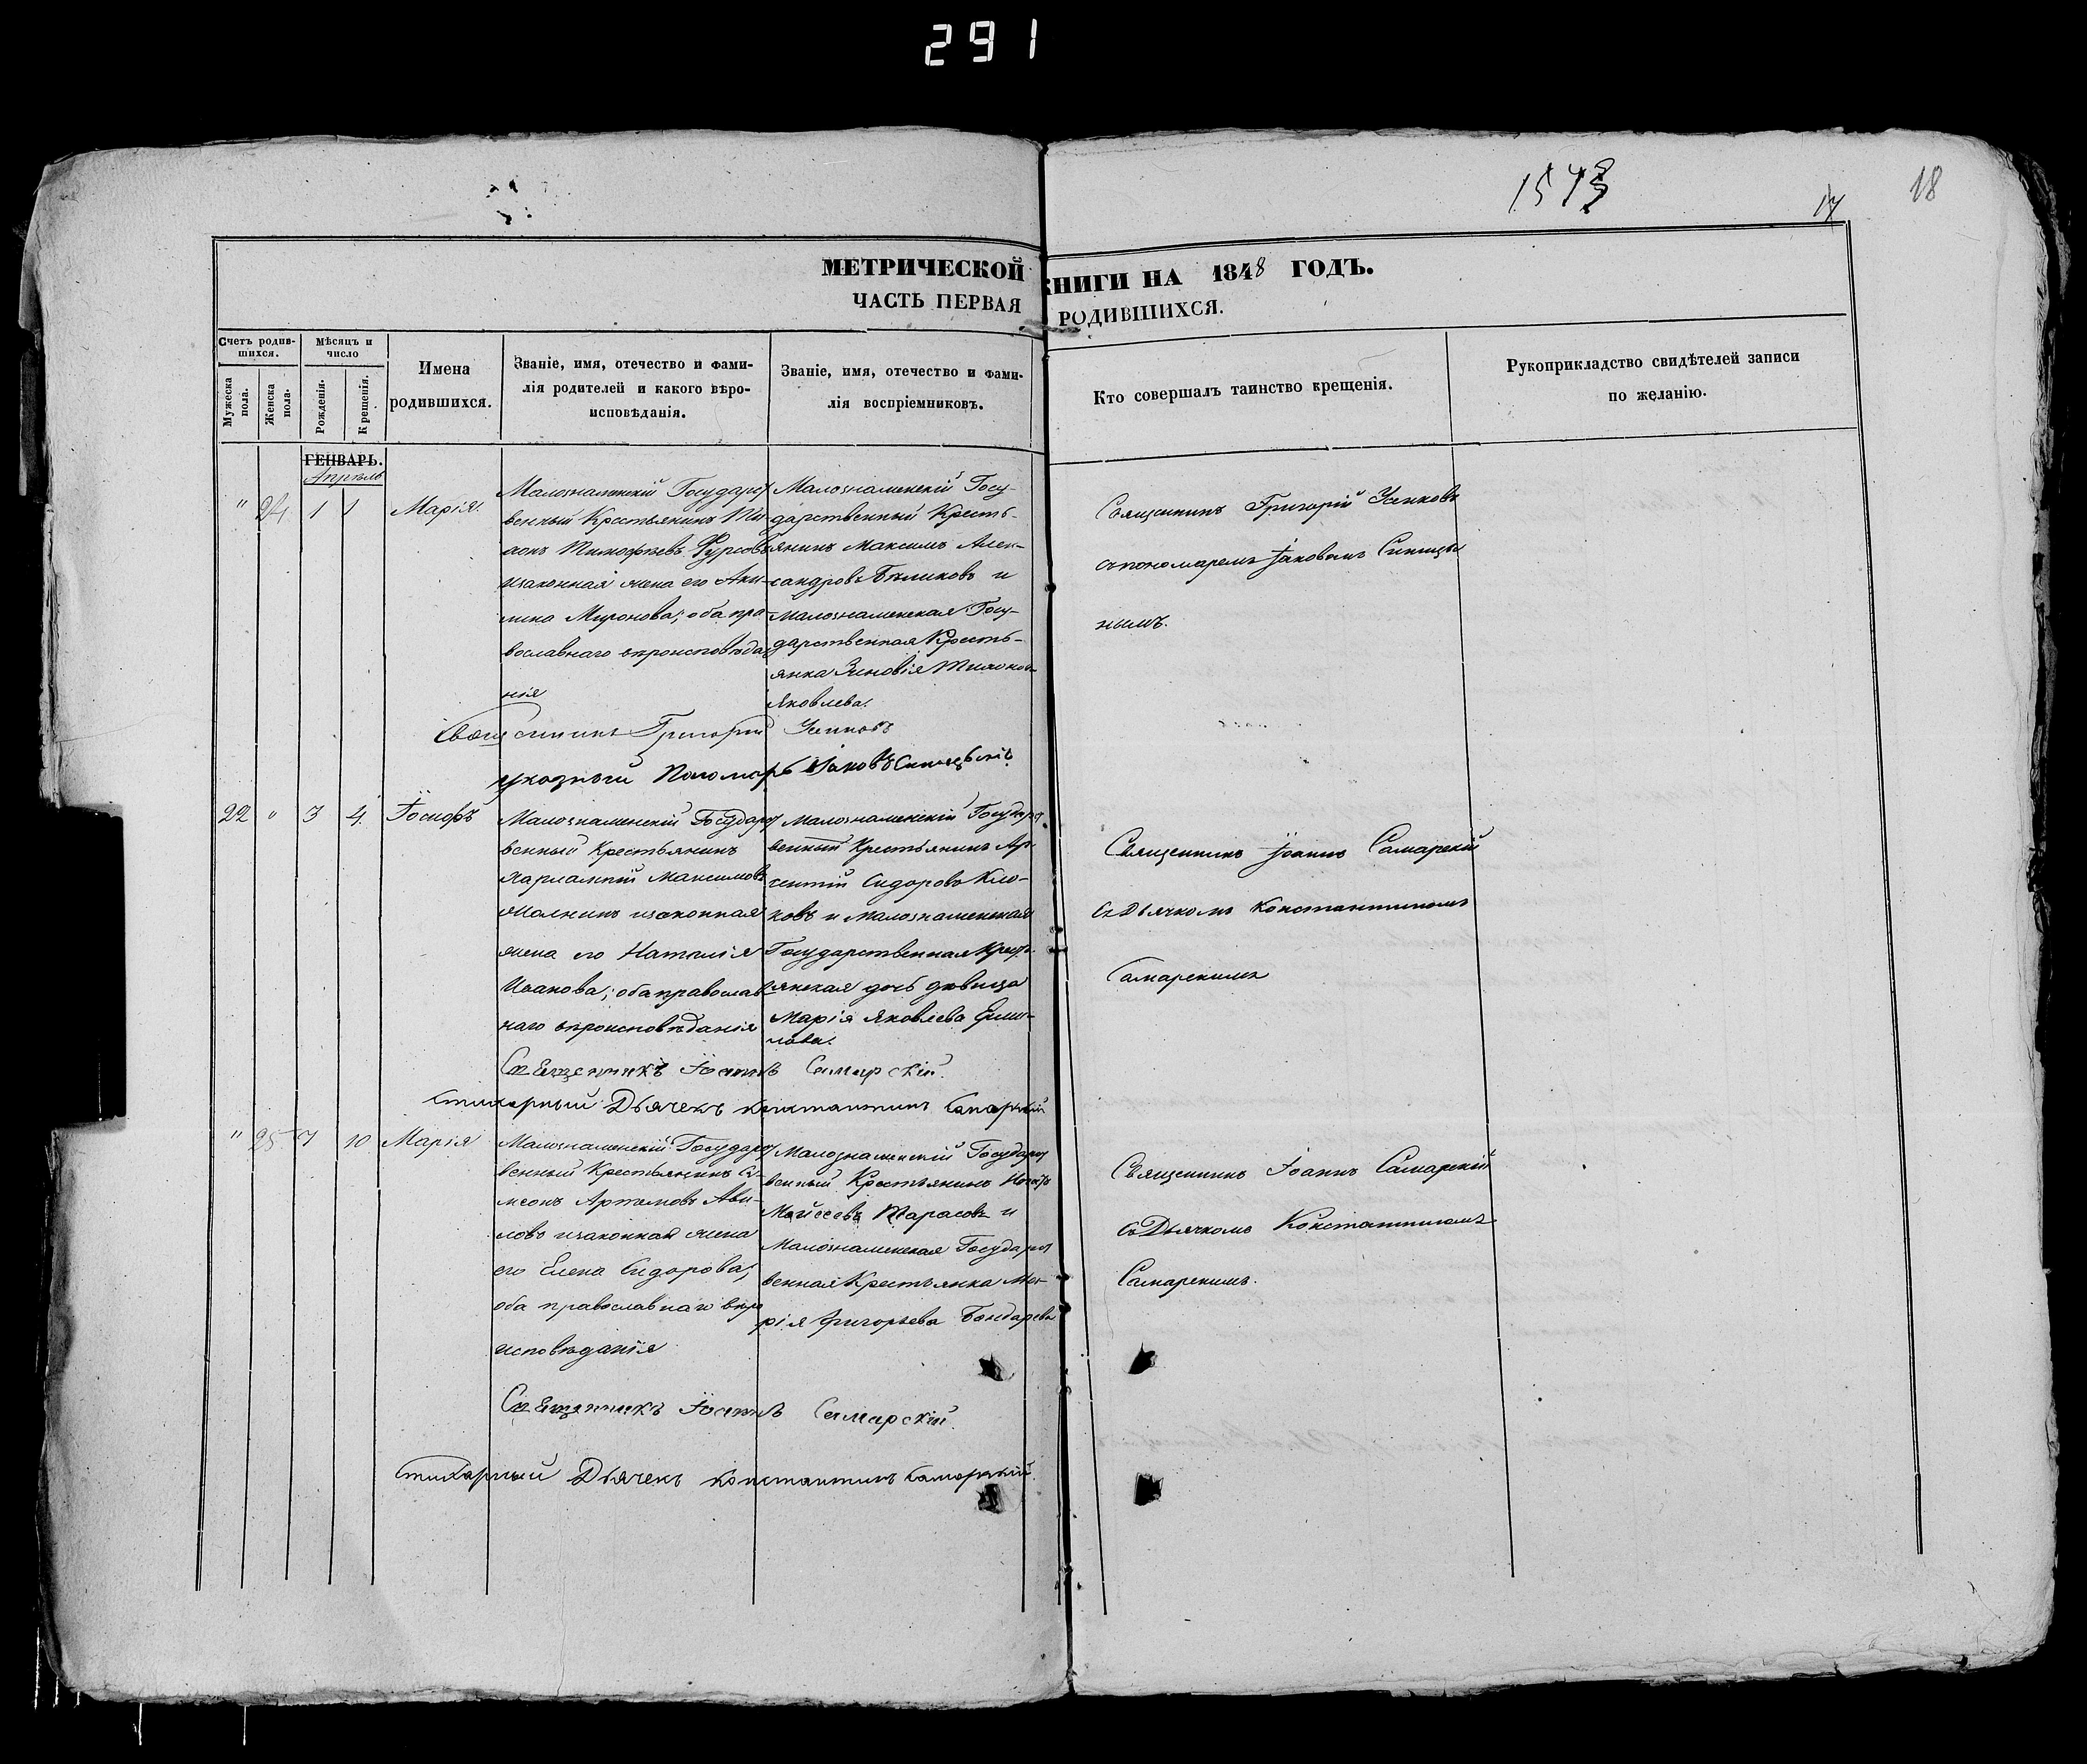 291
1543
17
18
МЕТРИЧЕСКОЙ КНИГИ НА 1848 ГОДЪ.
ЧАСТЬ ПЕРВАЯ РОДИВШИХСЯ.
Счетъ родив-
шихся.
Мужеска пола.
Женска пола.
Мѣсяцъ и
число
Рожденія.
Крещенія.
Имена
родившихся.
Званіе, имя, отечество и фами-
лія родителей и какого вѣро-
исповѣданія.
Званіе, имя, отечество и фами-
лія воспріемниковъ.
Кто совершалъ таинство крещенія.
Рукоприкладство свидѣтелей записи
по желанію.
ГЕНВАРЬ.
Апрѣль
" 24 1 1 Марія.
Малознаменскій Государст
венный Крестьянинъ Ти
хонъ Тимофѣевъ Фурсовъ
изаконная жена его Аки-
лина Миронова; оба пра
вославнаго вѣроисповѣда
нія
Малознаменскій Госу-
дарственный Кресть-
янинъ Максимъ Алек-
сандровъ Бѣликовъ и
Малознаменская Госу-
дарственная Кресть-
янка Зиновія
Яковлева.
Священникъ Григорій Усиковъ
съпономаремъ Іаковомъ
нымъ.
Священникъ Григорій Усиковъ
указный Пономарь Іаковъ
22 " 3 4. Іосифъ
Малознаменскій Государст
венный Крестьянинъ
Харлампій Максимовъ
изаконная
жена его Наталія
Иванова; оба православ
наго вѣроисповѣданія
Малознаменскій Государст
венный Крестьянинъ Ар
сентій Сидоровъ Кло-
ковъ и Малознаменская
Государственная Кресть
янская дочь дѣвица
Марія Яковлева Ерми-
лова.
Священникъ Іоаннъ Самарскій
съДьячкомъ Константиномъ
Самарскимъ
Священникъ Іоаннъ Самарскій.
Стихарный Дьячекъ Константинъ Самарскій
" 25 7 10 Марія
Малознаменскій Государст
венный Крестьянинъ Си-
меонъ Артамовъ Ави-
ловъ изаконная жена
его Елена Сидорова;
оба православнаго вѣро
исповѣданія
Малознаменскій Государст
венный Крестьянинъ Игнатъ
Мойсеевъ Тарасовъ и
Малознаменская Государст
венная Крестьянка Ма-
рія Григорьева Бондарева
Священникъ Іоаннъ Самарскій
съДьячкомъ Константиномъ
Самарскимъ.
Священникъ Іоаннъ Самарскій.
Стихарный Дьячекъ Константинъ Самарскій.